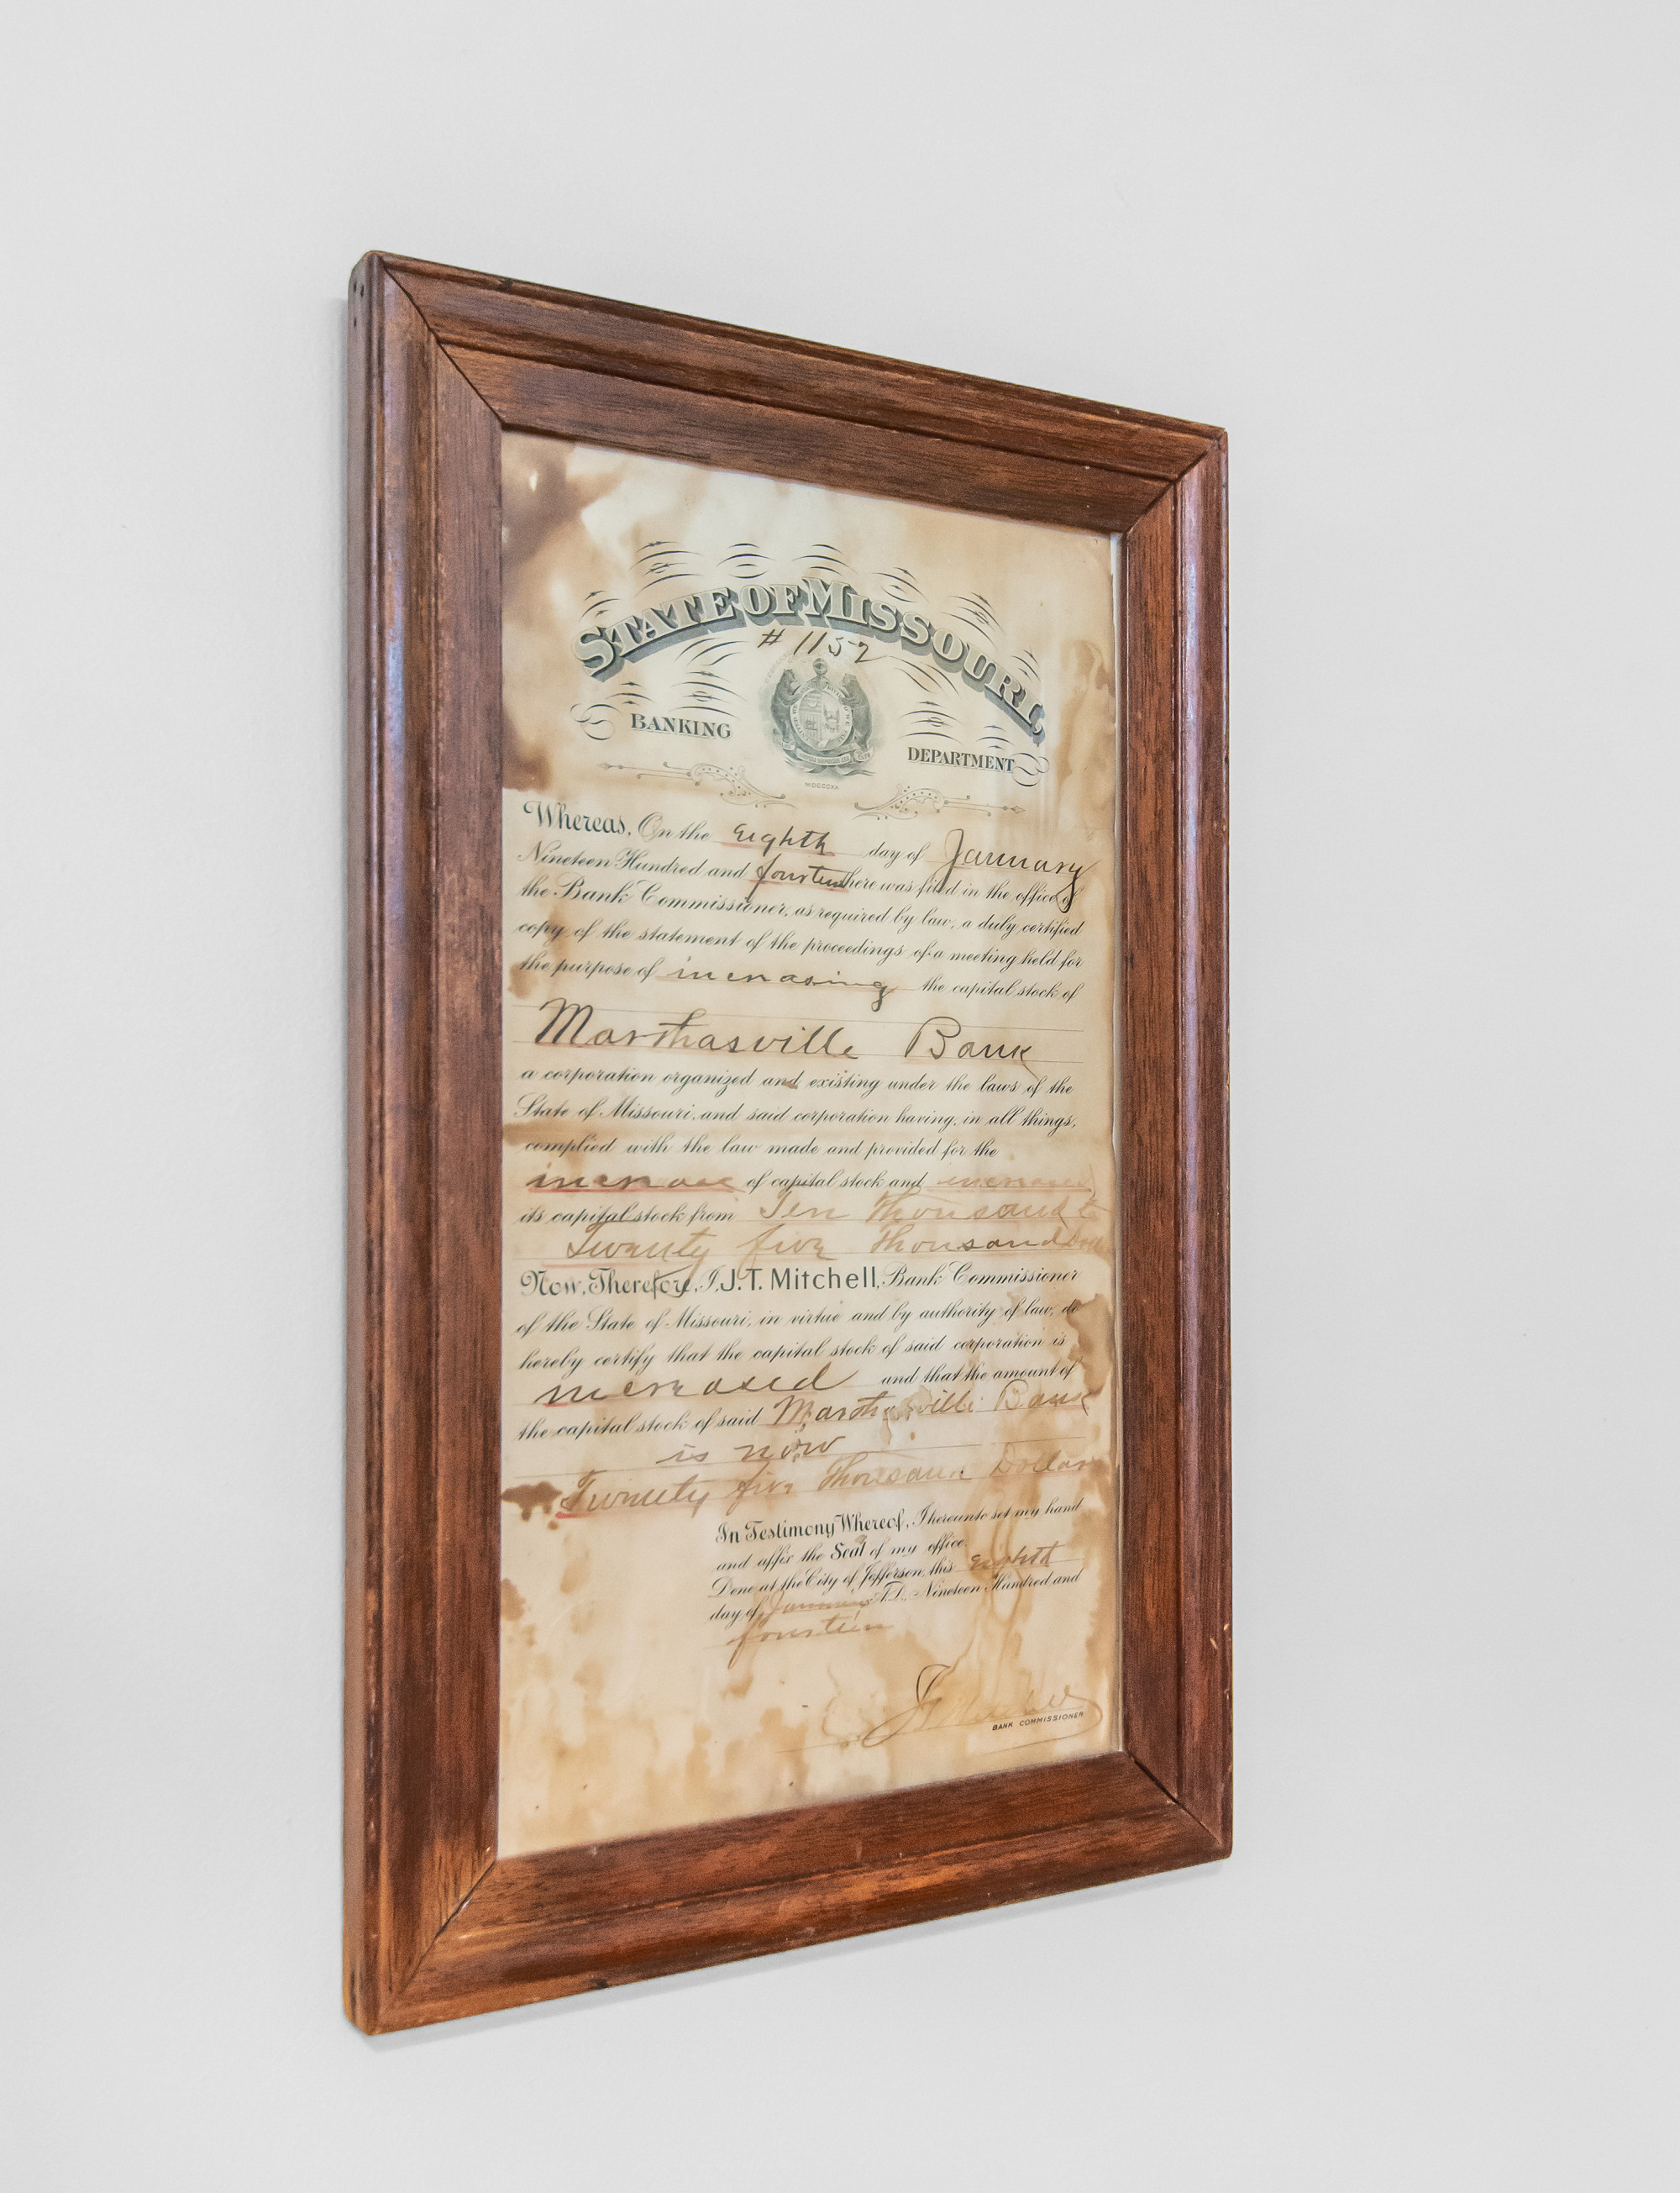 STATE OF MISSOURI,
# 1152
BANKING DEPARTMENT
Whereas, On the Eighth day of January
Nineteen Hundred and fourteen there was filed in the office of
the Bank Commissioner, as required by law, a duly certified
copy of the statement of the proceedings of a meeting held for
the purpose of increasing the capital stock of
Marthasville Bank
a corporation organized and existing under the laws of the
State of Missouri, and said corporation having, in all things,
complied with the law made and provided for the
increase of capital stock and increased
its capital stock from Ten Thousand to
Twenty five Thousand Dolls
Now, Therefore, I, J.T. Mitchell, Bank Commissioner
of the State of Missouri, in virtue and by authority of law, do
hereby certify that the capital stock of said corporation is
increased and that the amount of
the capital stock of said Marthasville Bank
is now
Twenty five Thousand Dollars
In Testimony Whereof, I hereunto set my hand
and affix the Seal of my office.
Done at the City of Jefferson, this Eighth
day of January A.D., Nineteen Hundred and
fourteen
J T Mitchell
BANK COMMISSIONER